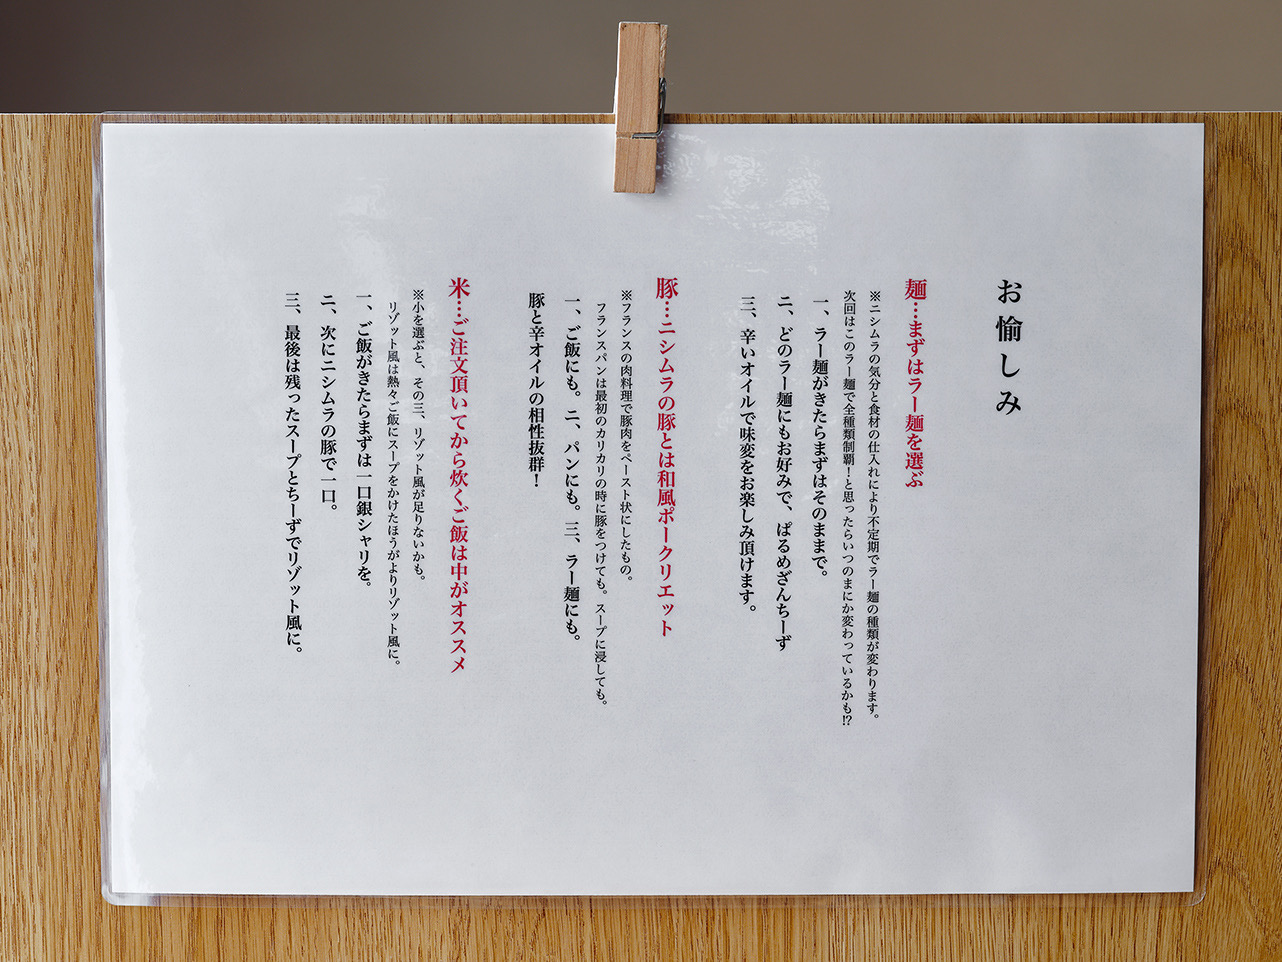 お愉しみ
麺…まずはラー麺を選ぶ
※ニシムラの気分と食材の仕入れにより不定期でラー麺の種類が変わります。
次回はこのラー麺で全種類制覇！と思ったらいつのまにか変わっているかも!?
一、ラー麺がきたらまずはそのままで。
ニ、どのラー麺にもお好みで、ぱるめざんちーず
三、辛いオイルで味変をお楽しみ頂けます。
豚…ニシムラの豚とは和風ポークリエット
※フランスの肉料理で豚肉をペースト状にしたもの。
フランスパンは最初のカリカリの時に豚をつけても。スープに浸しても。
一、ご飯にも。ニ、パンにも。三、ラー麺にも。
豚と辛オイルの相性抜群！
米…ご注文頂いてから炊くご飯は中がオススメ
※小を選ぶと、その三、リゾット風が足りないかも。
リゾット風は熱々ご飯にスープをかけたほうがよりリゾット風に。
一、ご飯がきたらまずは一口銀シャリを。
ニ、次にニシムラの豚で一口。
三、最後は残ったスープとちーずでリゾット風に。